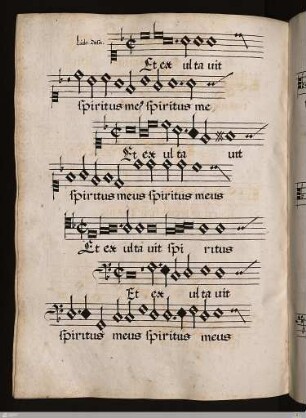 Et ex ul ta uit
spiritus me⁹ spiritus me
Et ex ul ta uit
spiritus meus spiritus meus
Et ex ul ta uit spi ritus
Et ex ul ta uit
spiritus meus spiritus meus